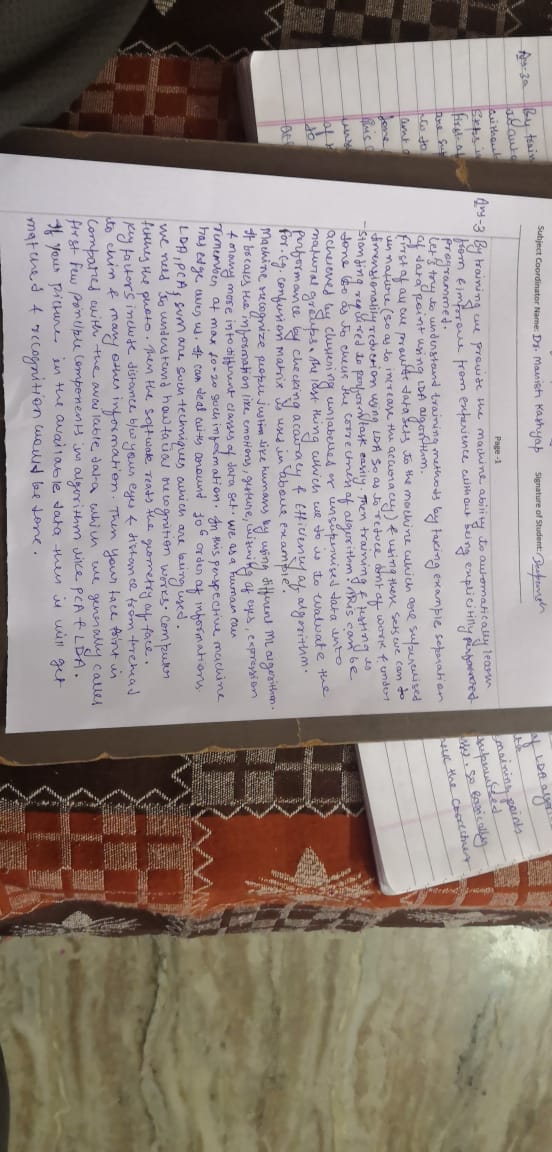 Subject Coordinator Name: Dr. Manish Kashyap Signature of Student:
Page -1
Ans-3 By training we provide the machine ability to automatically learn
from & improve from experience without being explicitilly
programmed.
Let's try to understand training methods by taking example seporation
of data point using LDA algorithm.
First of all we provide data sets to the machine which are supervised
in nature (so as to increase the accuracy) & using these sets we can do
dimensionality reduction using LDA so as to reduce amt of work & under
-standing required to perform task easily. Then training & testing is
done so as to check the correctness of algorithm. This can be
acheieved by clustering unlabelled or unsupervised data into
natural groups. The last thing which we do is to evaluate the
performance by checking accuracy & Efficiency of algorithm.
For. eg. confusion matrix is used in above example.
Machine recognize people just like humans by using different ML algorithm.
It locates the information like emotions, gesture, of eyes, expression
& many more into different classes of data set. we as a human can
remember at max 10-20 such information. In this perspective machine
has edge over us. It can deal with around 10⁶ order of informations.
LDA, PCA, SVM are such techniques which are being used.
We need to understand how facial recognition works. Computer
fetches the photo. Then the software reads the geometry of face.
Key factors include distance b/w your eyes & distance from forehead
to chin & many other information. Then your face print is
compared with the available data which we generally called
first few components in algorithm like PCA & LDA.
If your picture in the available data then it will get
matched & recognition would be done.
Ans-3a By train
without
first of
are sup
to do
amt o
done
this c
of
to
of LDA algor
maining points
supervised
so Basically
the correctness